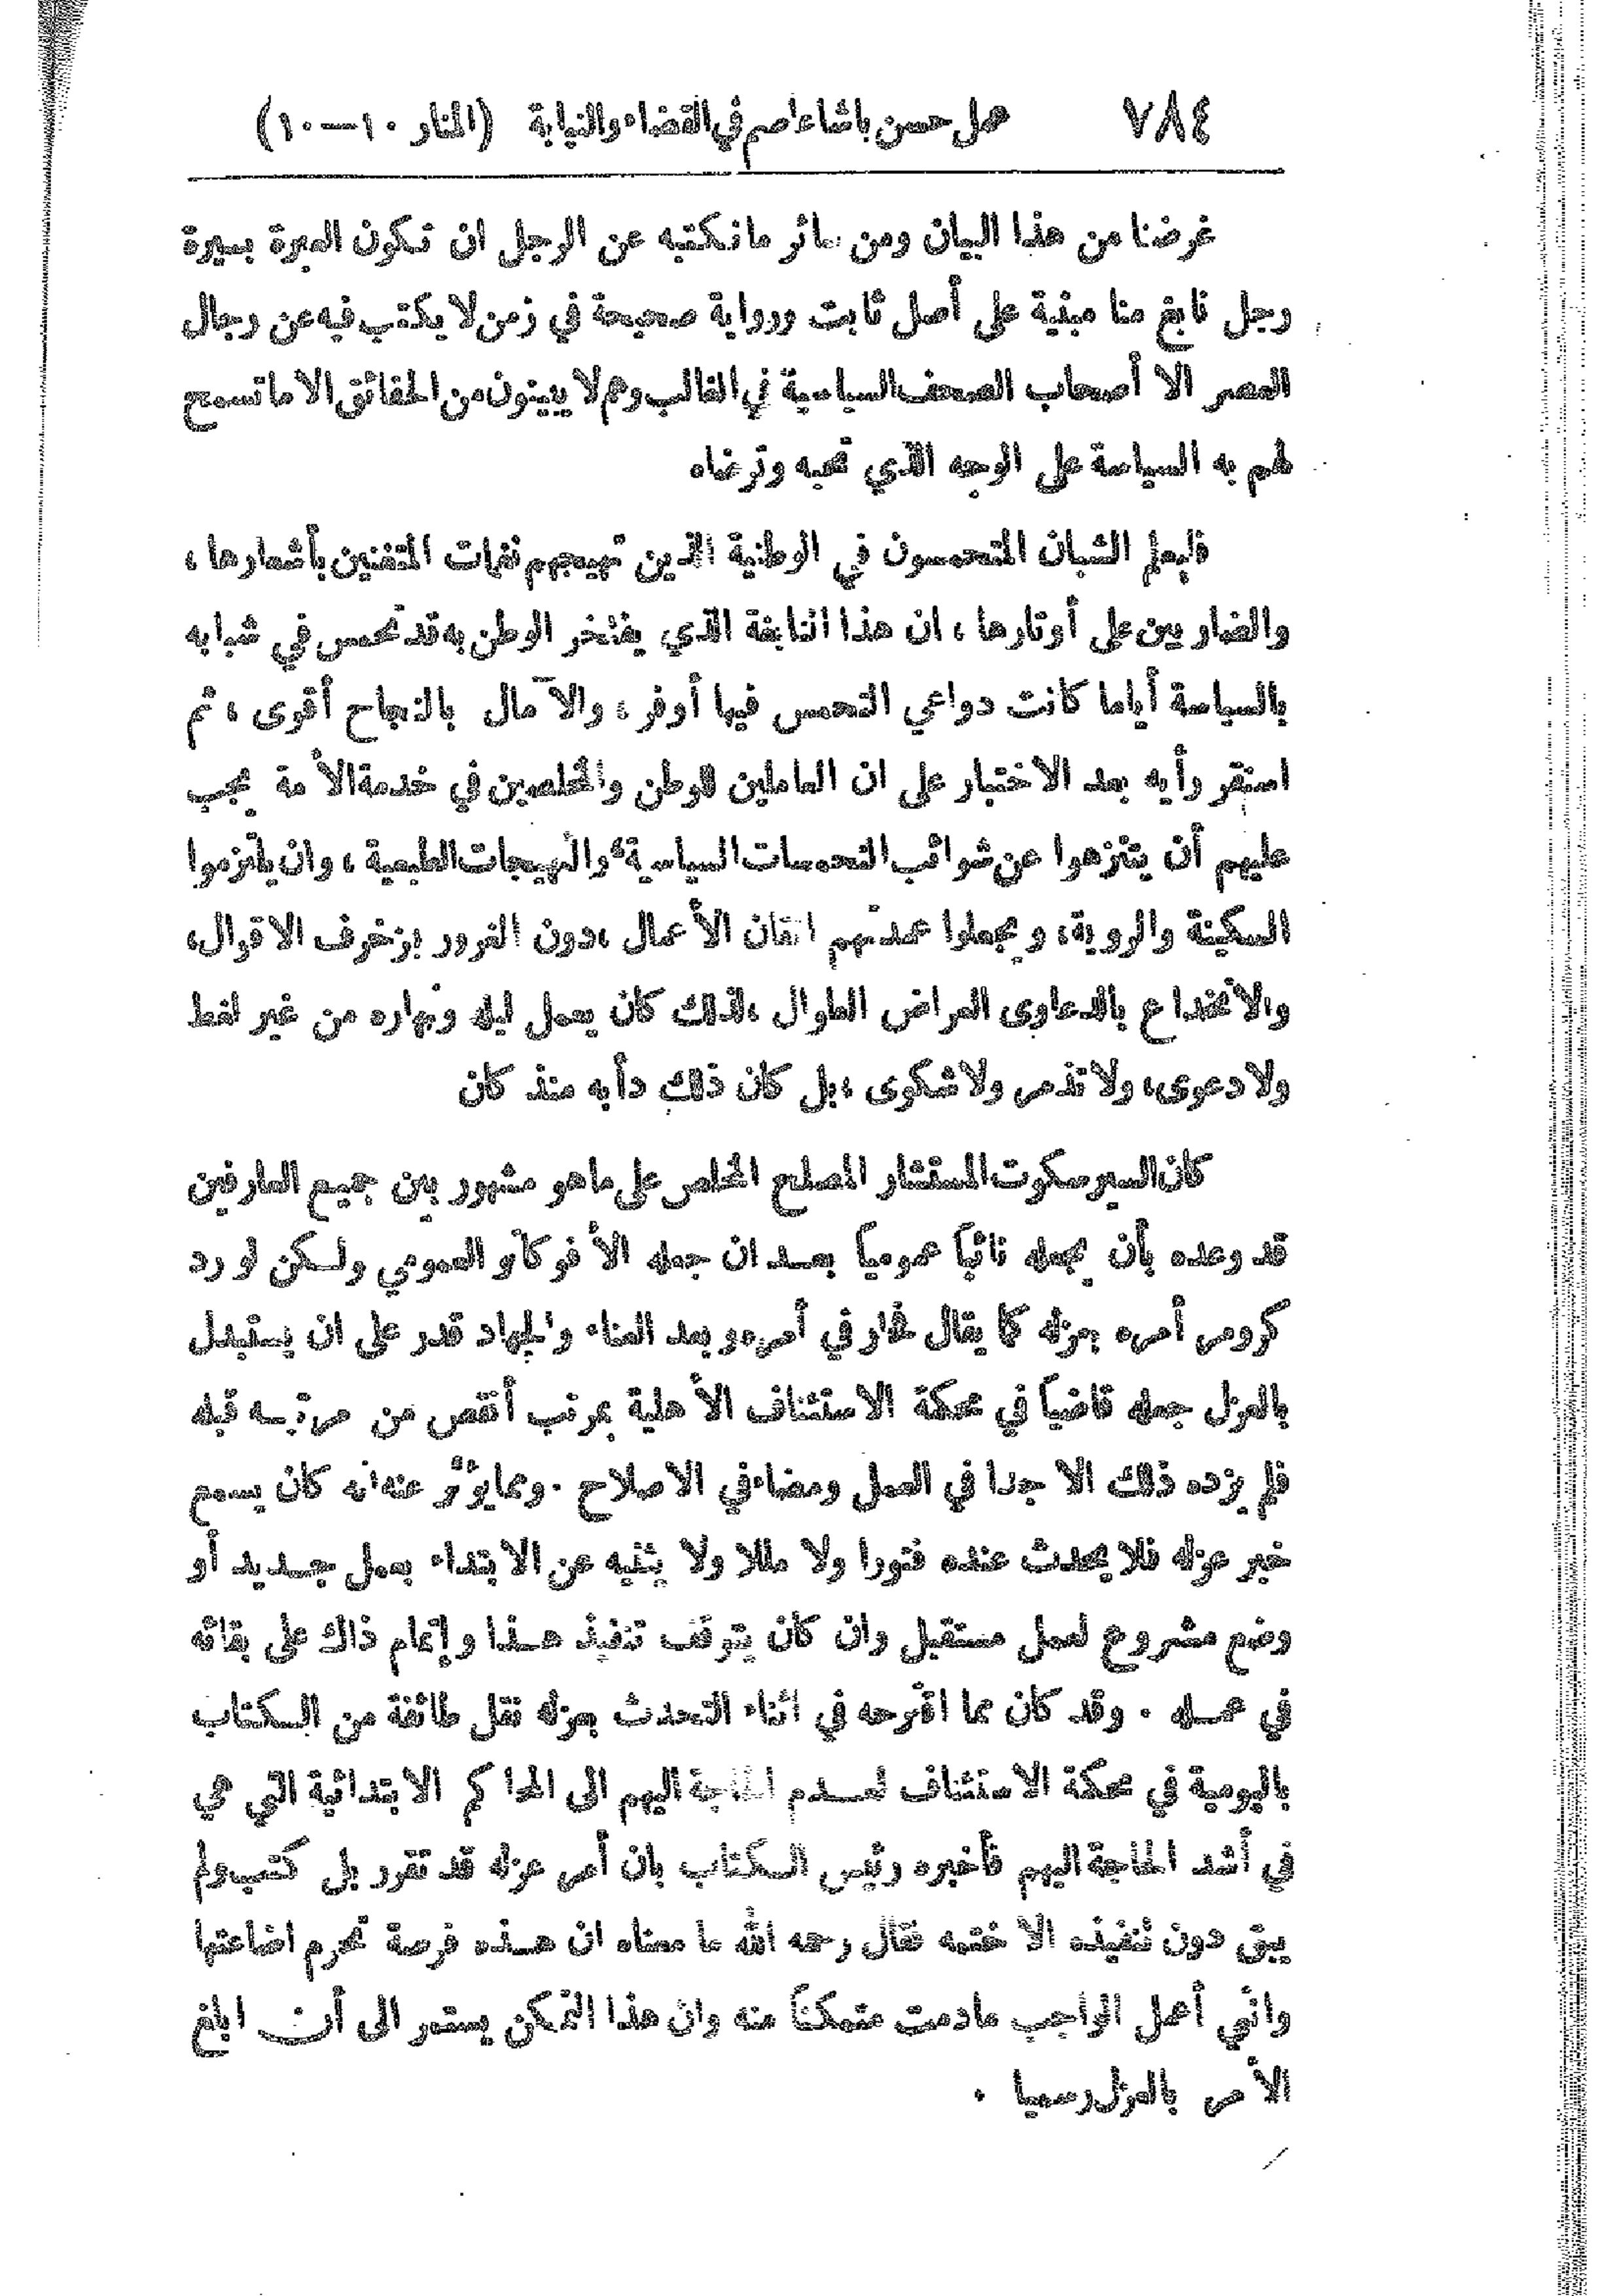 ٧٨٤ عمل حسن باشا عاصم في القضاء والنيابة (المنار ١٠—١٠)
غرضنا من هذا البيان ومن سائر ما نكتبه عن الرجل ان تكون العبرة بسيرة
رجل نابغ منا مبنية على أصل ثابت ورواية صحيحة في زمن لا يكتب فيه عن رجال
العصر الا أصحاب الصحف السياسية في الغالب وهم لا يبينون من الحقائق الا ما تسمح
لهم به السياسة على الوجه الذي تحبه وترضاه
فليعلم الشبان المتحمسون في الوطنية الذين تهيجهم نغمات المتغنين بأشعارها ،
والضاربين على أوتارها ، ان هذا النابغة الذي يفتخر الوطن به قد تحمس في شبابه
بالسياسة أياما كانت دواعي التحمس فيها أوفر ، والآمال بالنجاح أقوى ، ثم
استقر رأيه بعد الاختبار على ان العاملين للوطن والمخلصين في خدمة الأمة يجب
عليهم أن يتنزهوا عن شوائب التحمسات السياسية، والتهيجات الطبعية ، وان يلتزموا
السكينة والروية، ويجعلوا عمدتهم اتقان الأعمال ،دون الغرور بزخرف الاقوال،
والانخداع بالدعاوى العراض الطوال ،لذلك كان يعمل ليله ونهاره من غير لغط
ولا دعوى، ولا تذمر ولا شكوى ،بل كان ذلك دأبه منذ كان
كان السير سكوت المستشار المصلح المخلص على ما هو مشهور بين جميع العارفين
قد وعده بأن يجعله نائباً عمومياً بعد ان جعله الأفوكاتو العمومي ولكن لورد
كرومر أمره بعزله كما يقال فحار في أمره وبعد العناء والجهاد قدر على ان يستبدل
بالعزل جعله قاضياً في محكمة الاستئناف الأهلية بمرتب أنقص من مرتبه قبله
فلم يزده ذلك الا جدا في العمل ومضاء في الاصلاح . ومما يؤثر عنه انه كان يسمع
خبر عزله فلا يحدث عنده فتورا ولا مللا ولا يثنيه عن الابتداء بعمل جديد أو
وضع مشروع لعمل مستقبل وان كان يتوقف تنفيذ هذا وإتمام ذاك على بقائه
في عمله . وقد كان مما اقترحه في اثناء التحدث بعزله نقل طائفة من الكتاب
باليومية في محكمة الاستئناف لعدم الحاجة اليهم الى المحاكم الابتدائية التي هي
في أشد الحاجة اليهم فأخبره رئيس الكتاب بان أمر عزله قد تقرر بل كتب ولم
يبق دون تنفيذه الا ختمه فقال رحمه الله ما معناه ان هذه فرصة تحرم اضاعتها
واني أعمل الواجب ما دمت متمكناً منه وان هذا التمكن يستمر الى أن ابلغ
الأمر بالعزل رسميا .